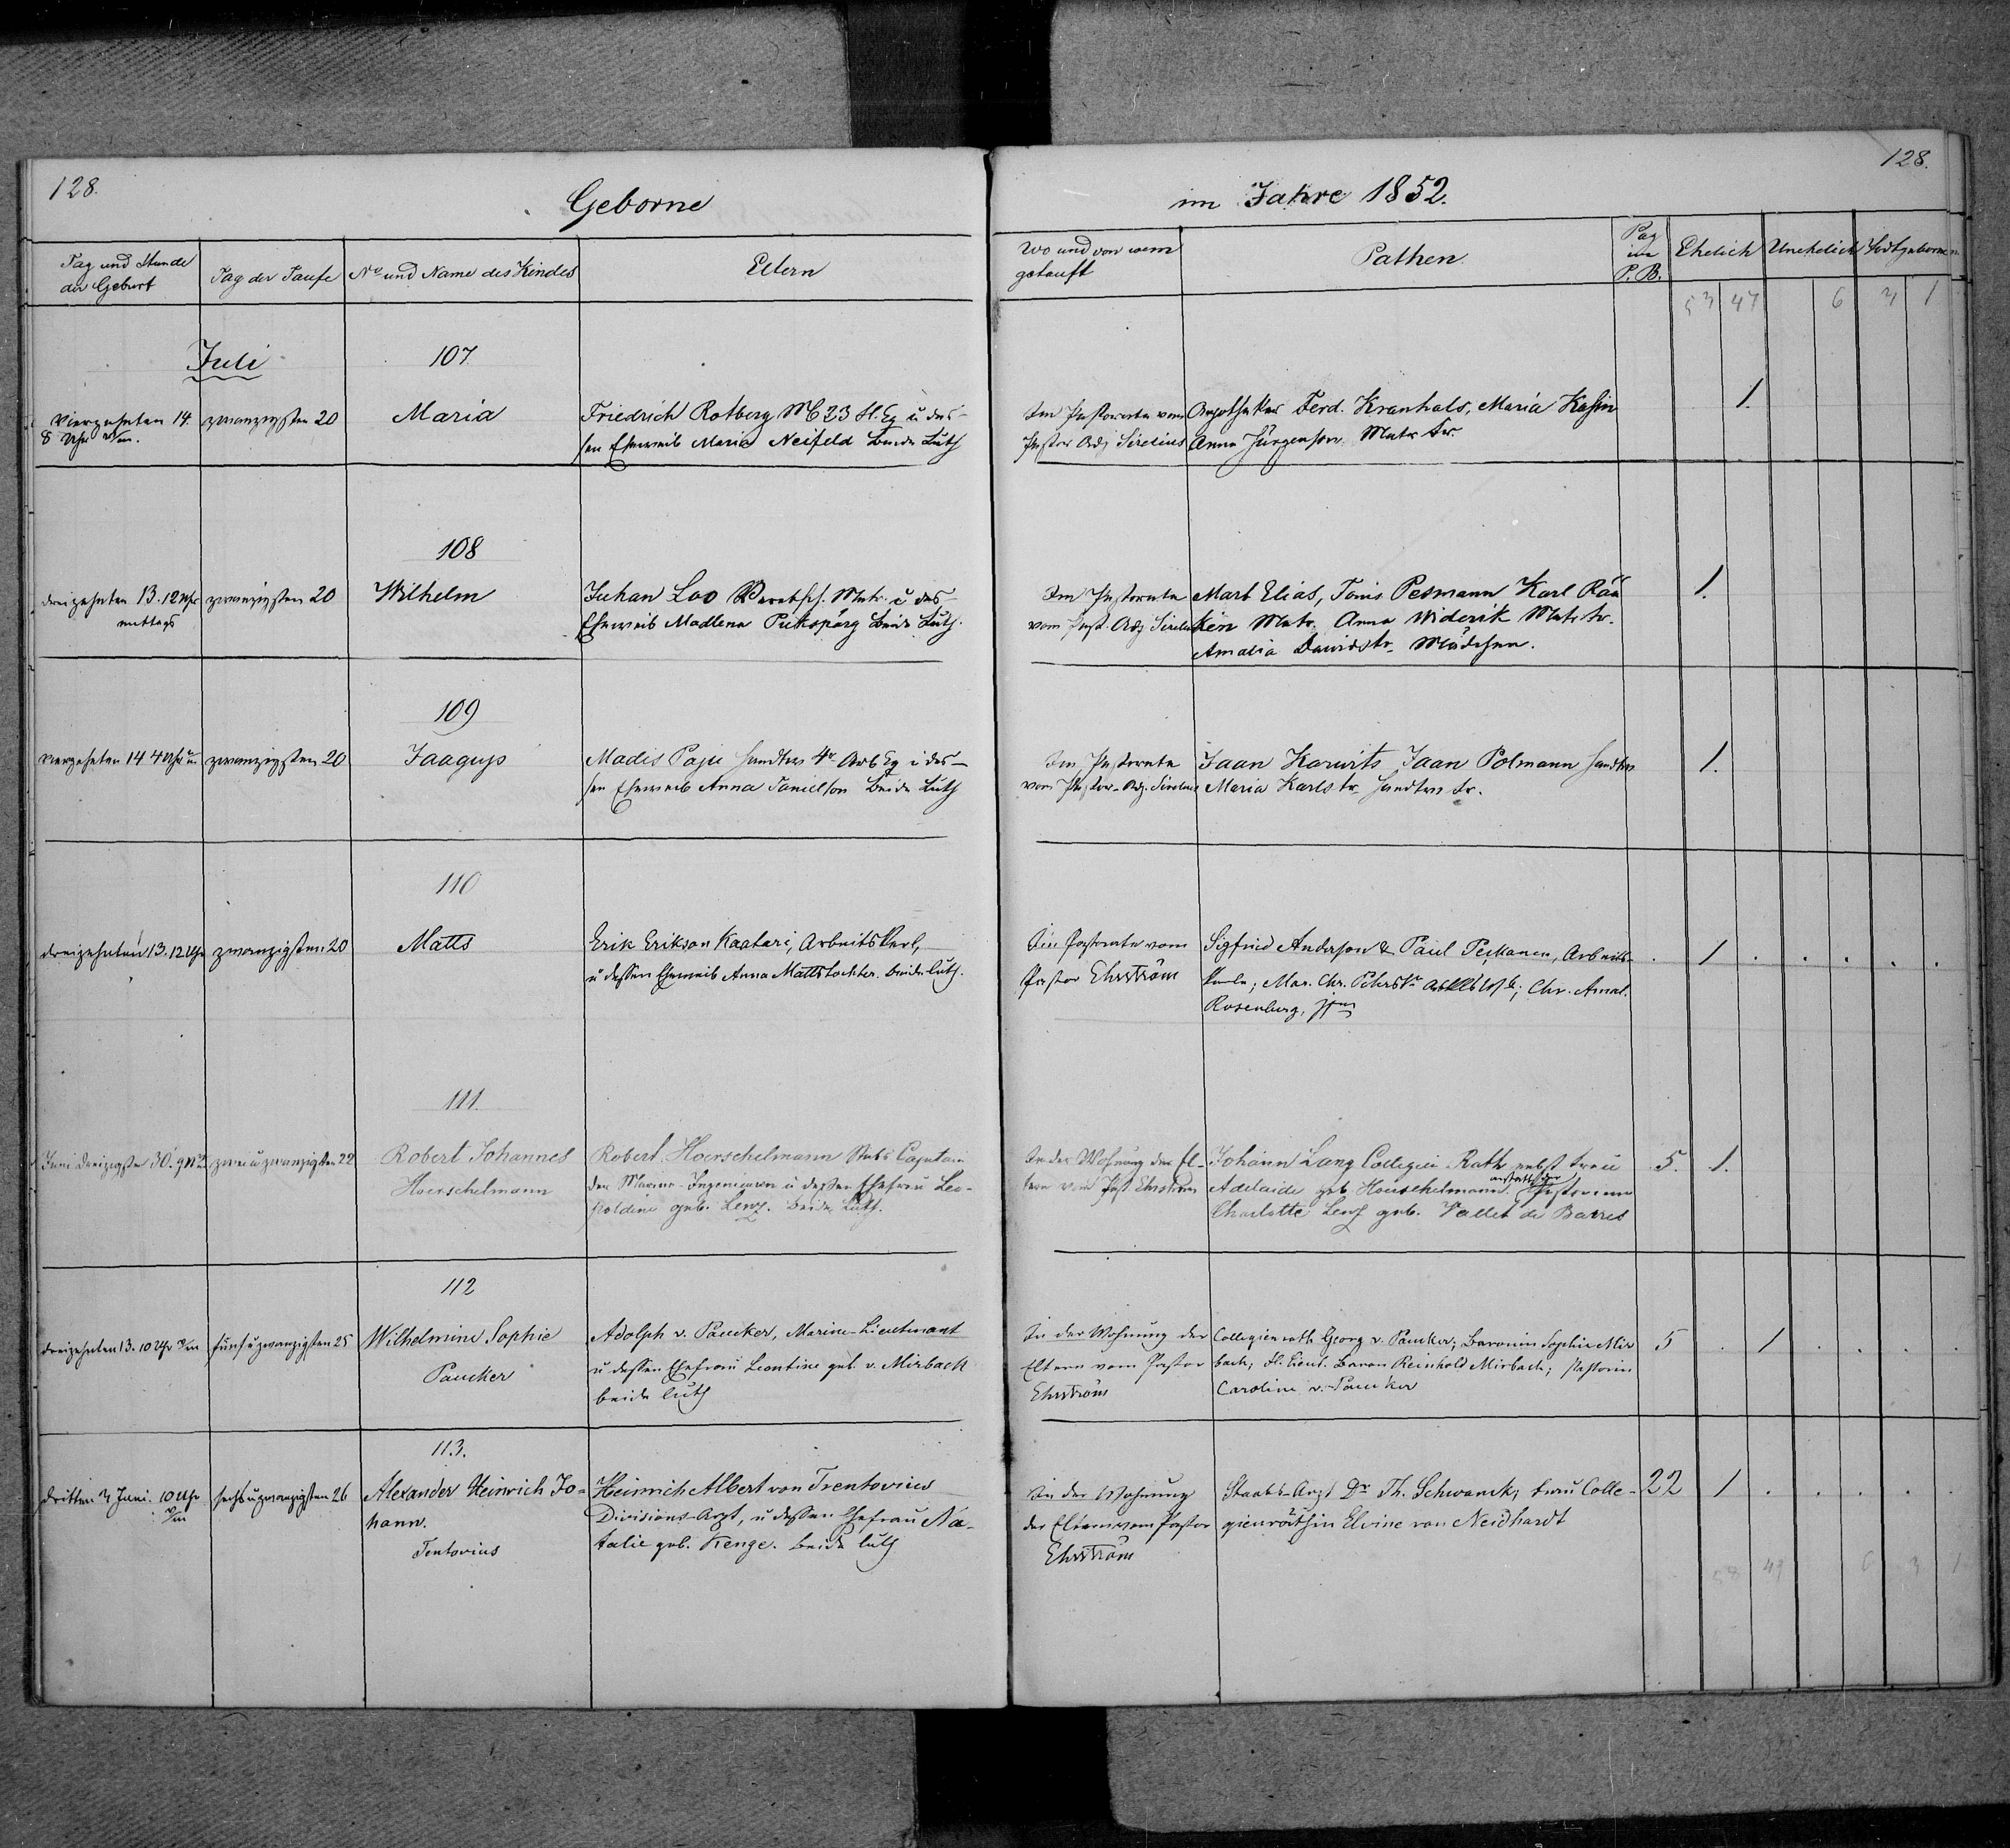 128.
Geborne
Tag und Stunde
der Geburt
Tag der Taufe
No und Name des Kindes
Eltern
Juli
107
vierzehnten 14.
8 Uhr
zwanzigsten 20
Maria
Friedrich Rotberg 23 u des-
sen Eheweib Maria Neifeld beide Luth
108
dreizehnten 13. 12 Uhr
mittags
zwanzigsten 20
Wilhelm
Juhan Loo Matr. u des
Eheweib Madlena Pukspärg beide Luth.
109
vierzehnten 14 4 Uhr
zwanzigsten 20
Jaagup
Madis Paju 4r Arb Eq u des-
sen Eheweib Anna Taniellson beide Luth
110
dreizehnten 13. 12 Uhr
zwanzigsten 20
Matts
Erik Erikson Kaatari, Arbeitskerl,
u dessen Eheweib Anna Mattstochter. beide luth.
111.
Juni dreizigste 30. 9
zwei u zwanzigsten 22
Robert Johannes
Hoerschelmann
Robert Hoerschelmann Stabs Capitain
der Marine-Ingenieure u dessen Ehefrau Leo-
poldine geb. Lenz. beide Luth.
112
dreizehnten 13. 10 Uhr
fünf u zwanzigsten 25
Wilhelmine Sophie
Paucker
Adolph v. Paucker, Marine-Lieutenant
u dessen Ehefrau Leontine geb. v. Mirbach
beide luth
113.
dritten 3 Juni. 10 Uhr
sechs u zwanzigsten 26
Alexander Heinrich Jo-
hann.
Tentovius
Heinrich Albert von Trentovius
Divisions-Arzt, u dessen Ehefrau Na-
talie geb. Kenge. beide luth
128.
im Jahre 1852.
Wo und von wem
getauft
Pathen.
Pag
im
P. B.
Ehelich
Unehelich
Todtgeboren
53 47 6 3 1
Im Pastorate vom
Pastor Adj Sirelius
Apotheker Ferd. Kranhals, Maria Kasin
Anna Jürgenson Matr tr.
1.
Im Pastorate
vom Past. Adj Sirelius
Mart Elias, Tönis Pesmann Karl Rää
ken Matr. Anna Widerik Matr tr.
Amalia Davidstr. Mädchen.
1.
Im Pastorate
vom Pastor-Adj. Sirelius
Jaan Karwits Jaan Polmann
Maria Karlstr.
1.
Im Pastorate vom
Pastor Ehrström
Sigfried Anderson & Paul Peskanen, Arbeits-
kerle; Mar. Chr. Pehrstr; Chr. Amal.
Rosenberg,
1
In der Wohnung der El-
tern vom Past Ehrström
Johann Lang Collegien Rath nebst Frau
Adelaide geb. Hoerschelmann. anstatt der Pastorinn
Charlotte Lenz geb. Vallet de Barres
5. 1.
In der Wohnung der
Eltern vom Pastor
Ehrström
Collegienrath Georg v. Paucker; Baronin Sophie Mir
bach; Lieut. Baron Reinhold Mirbach; Pastorin
Caroline v. Paucker
5 1
In der Wohnung
der Eltern vom Pastor
Ehrström
Staabs-Arzt Dr Th. Schwanck, Frau Colle-
gienräthin Elvine von Neidhardt
22 1
58 49 6 3 1